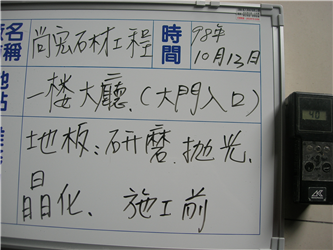 名稱 尚宏石材工程 時間 98年10月13日
地點 一楼大廳.(大門入口)
地板:研磨.拋光.
晶化、施工前